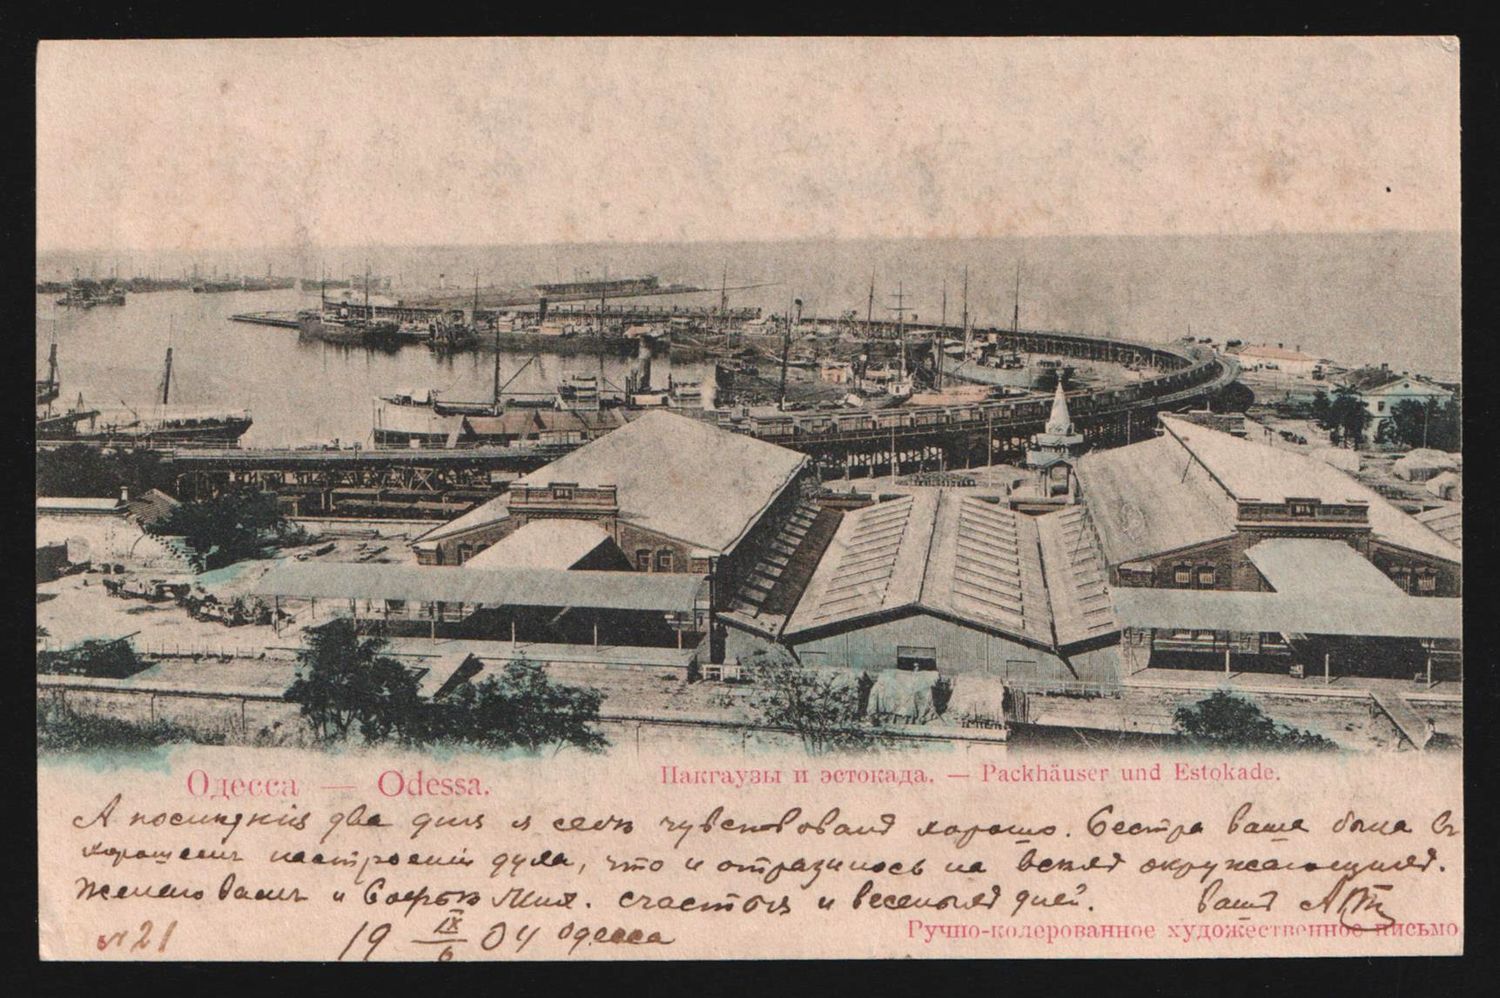 Одесса — Odessa.
Пакгаузы и эстокада. — Packhäuser und Estokade.
А последнія два дня я себя чувствовалъ хорошо. Сестра ваша была въ
хорошемъ настроеніи духа, что и отразилось на всѣхъ окружающихъ.
Желаю вамъ и Софьѣ Мих. счастья и веселыхъ дней. вашъ
19 IX/6 04 Одесса
№ 21
Ручно-колерованное художественное письмо